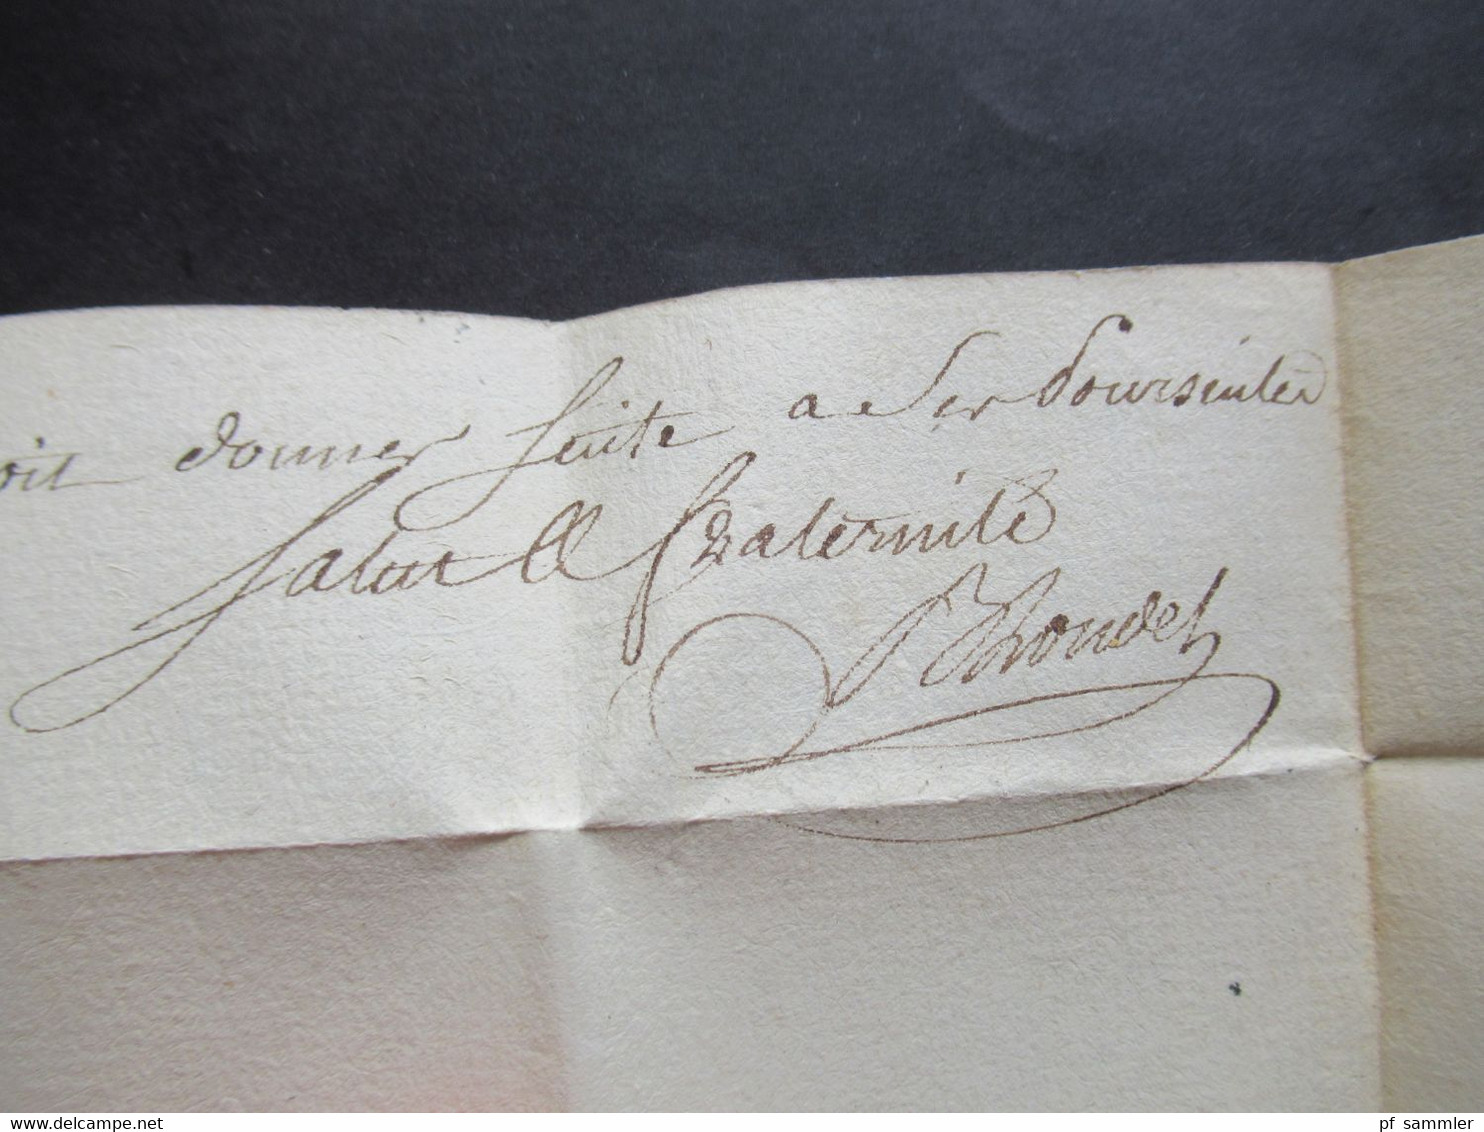 oit donner suite a ses poursuites
Salut & fraternité
Rhondel
www.delcampe.net
pf_sammler